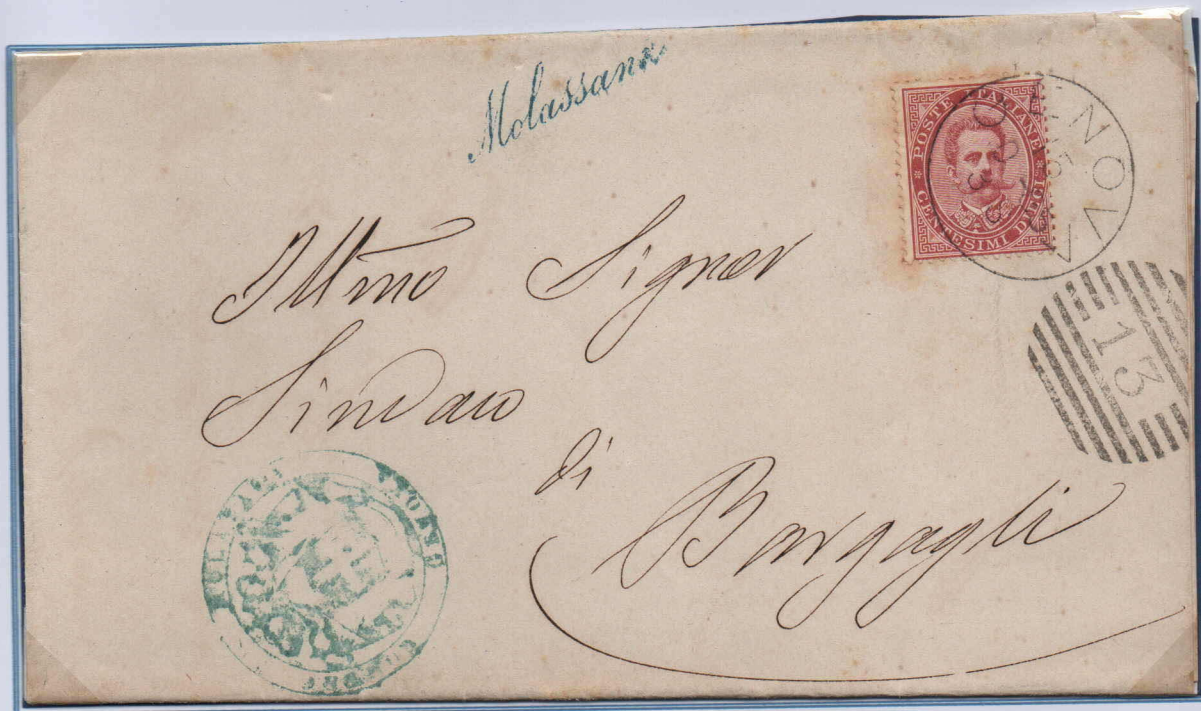 Molassana
POSTE ITALIANE
CENTESIMI DIECI
GENOVA
13
Illmo Signor
Sindaco
di
Bargagli